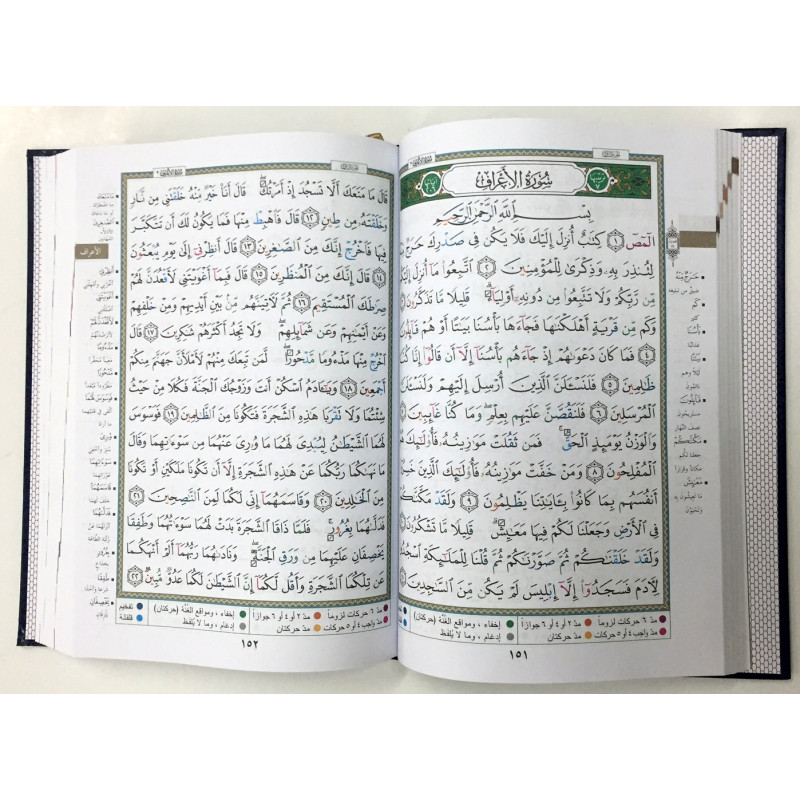 سُورَةُ الْأَعْرَافِ
بِسْمِ اللَّهِ الرَّحْمَٰنِ الرَّحِيمِ
الٓمٓصٓ ١ كِتَٰبٌ أُنزِلَ إِلَيْكَ فَلَا يَكُن فِى صَدْرِكَ حَرَجٌ
لِتُنذِرَ بِهِۦ وَذِكْرَىٰ لِلْمُؤْمِنِينَ ٢ ٱتَّبِعُوا۟ مَآ أُنزِلَ
مِّن رَّبِّكُمْ وَلَا تَتَّبِعُوا۟ مِن دُونِهِۦٓ أَوْلِيَآءَ ۗ قَلِيلًا مَّا تَذَكَّرُونَ
وَكَم مِّن قَرْيَةٍ أَهْلَكْنَٰهَا فَجَآءَهَا بَأْسُنَا بَيَٰتًا أَوْ هُمْ
٤ فَمَا كَانَ دَعْوَىٰهُمْ إِذْ جَآءَهُم بَأْسُنَآ إِلَّآ أَن قَالُوٓا۟ إِنَّا
ظَٰلِمِينَ ٥ فَلَنَسْـَٔلَنَّ ٱلَّذِينَ أُرْسِلَ إِلَيْهِمْ وَلَنَسْـَٔلَنَّ
ٱلْمُرْسَلِينَ ٦ فَلَنَقُصَّنَّ عَلَيْهِم بِعِلْمٍ ۖ وَمَا كُنَّا غَآئِبِينَ
وَٱلْوَزْنُ يَوْمَئِذٍ ٱلْحَقُّ ۚ فَمَن ثَقُلَتْ مَوَٰزِينُهُۥ فَأُو۟لَٰٓئِكَ
ٱلْمُفْلِحُونَ ٨ وَمَنْ خَفَّتْ مَوَٰزِينُهُۥ فَأُو۟لَٰٓئِكَ ٱلَّذِينَ
أَنفُسَهُم بِمَا كَانُوا۟ بِـَٔايَٰتِنَا يَظْلِمُونَ ٩ وَلَقَدْ
فِى ٱلْأَرْضِ وَجَعَلْنَا لَكُمْ فِيهَا مَعَٰيِشَ ۗ قَلِيلًا مَّا تَشْكُرُونَ
وَلَقَدْ خَلَقْنَٰكُمْ ثُمَّ صَوَّرْنَٰكُمْ ثُمَّ قُلْنَا لِلْمَلَٰٓئِكَةِ
لِـَٔادَمَ فَسَجَدُوٓا۟ إِلَّآ إِبْلِيسَ لَمْ يَكُن مِّنَ ٱلسَّٰجِدِينَ
حَرَجٌ مِّنْهُ
ضيق من تبليغه
كم
بَأْسُنَا
عذابنا
بَيَاتًا
ليلاً وهم
نائمون
قَآئِلُونَ
مستريحون
نصف النهار
مَكَّنَّاكُمْ
جعلنا لكم
مكاناً وقراراً
مَعَايِشَ
ما تعيشون به
وتحيون
مدّ ٦ حركات لزوماً مدّ ٢ أو ٤ أو ٦ جوازاً إخفاء ، ومواقع الغُنَّة (حركتان)
مدّ واجب ٤ أو ٥ حركات مدّ حركتان إدغام ، وما لا يُلفَظ
١٥١
قَالَ مَا مَنَعَكَ أَلَّا تَسْجُدَ إِذْ أَمَرْتُكَ ۖ قَالَ أَنَا۠ خَيْرٌ مِّنْهُ خَلَقْتَنِى مِن نَّارٍ
وَخَلَقْتَهُۥ مِن طِينٍ ١٢ قَالَ فَٱهْبِطْ مِنْهَا فَمَا يَكُونُ لَكَ أَن تَتَكَبَّرَ
فِيهَا فَٱخْرُجْ إِنَّكَ مِنَ ٱلصَّٰغِرِينَ ١٣ قَالَ أَنظِرْنِىٓ إِلَىٰ يَوْمِ يُبْعَثُونَ
١٤ قَالَ إِنَّكَ مِنَ ٱلْمُنظَرِينَ ١٥ قَالَ فَبِمَآ أَغْوَيْتَنِى لَأَقْعُدَنَّ لَهُمْ
صِرَٰطَكَ ٱلْمُسْتَقِيمَ ١٦ ثُمَّ لَـَٔاتِيَنَّهُم مِّنۢ بَيْنِ أَيْدِيهِمْ وَمِنْ خَلْفِهِمْ
وَعَنْ أَيْمَٰنِهِمْ وَعَن شَمَآئِلِهِمْ ۖ وَلَا تَجِدُ أَكْثَرَهُمْ شَٰكِرِينَ ١٧ قَالَ
ٱخْرُجْ مِنْهَا مَذْءُومًا مَّدْحُورًا ۖ لَّمَن تَبِعَكَ مِنْهُمْ لَأَمْلَأَنَّ جَهَنَّمَ مِنكُمْ
أَجْمَعِينَ ١٨ وَيَٰٓـَٔادَمُ ٱسْكُنْ أَنتَ وَزَوْجُكَ ٱلْجَنَّةَ فَكُلَا مِنْ حَيْثُ
شِئْتُمَا وَلَا تَقْرَبَا هَٰذِهِ ٱلشَّجَرَةَ فَتَكُونَا مِنَ ٱلظَّٰلِمِينَ ١٩ فَوَسْوَسَ
لَهُمَا ٱلشَّيْطَٰنُ لِيُبْدِىَ لَهُمَا مَا وُۥرِىَ عَنْهُمَا مِن سَوْءَٰتِهِمَا وَقَالَ
مَا نَهَىٰكُمَا رَبُّكُمَا عَنْ هَٰذِهِ ٱلشَّجَرَةِ إِلَّآ أَن تَكُونَا مَلَكَيْنِ أَوْ تَكُونَا
مِنَ ٱلْخَٰلِدِينَ ٢٠ وَقَاسَمَهُمَآ إِنِّى لَكُمَا لَمِنَ ٱلنَّٰصِحِينَ ٢١
فَدَلَّىٰهُمَا بِغُرُورٍ ۚ فَلَمَّا ذَاقَا ٱلشَّجَرَةَ بَدَتْ لَهُمَا سَوْءَٰتُهُمَا وَطَفِقَا
يَخْصِفَانِ عَلَيْهِمَا مِن وَرَقِ ٱلْجَنَّةِ ۖ وَنَادَىٰهُمَا رَبُّهُمَآ أَلَمْ أَنْهَكُمَا
عَن تِلْكُمَا ٱلشَّجَرَةِ وَأَقُل لَّكُمَآ إِنَّ ٱلشَّيْطَٰنَ لَكُمَا عَدُوٌّ مُّبِينٌ ٢٢
الأعراف
مدّ ٦ حركات لزوماً مدّ ٢ أو ٤ أو ٦ جوازاً إخفاء ، ومواقع الغُنَّة (حركتان) تفخيم
مدّ واجب ٤ أو ٥ حركات مدّ حركتان إدغام ، وما لا يُلفَظ قلقلة
١٥٢